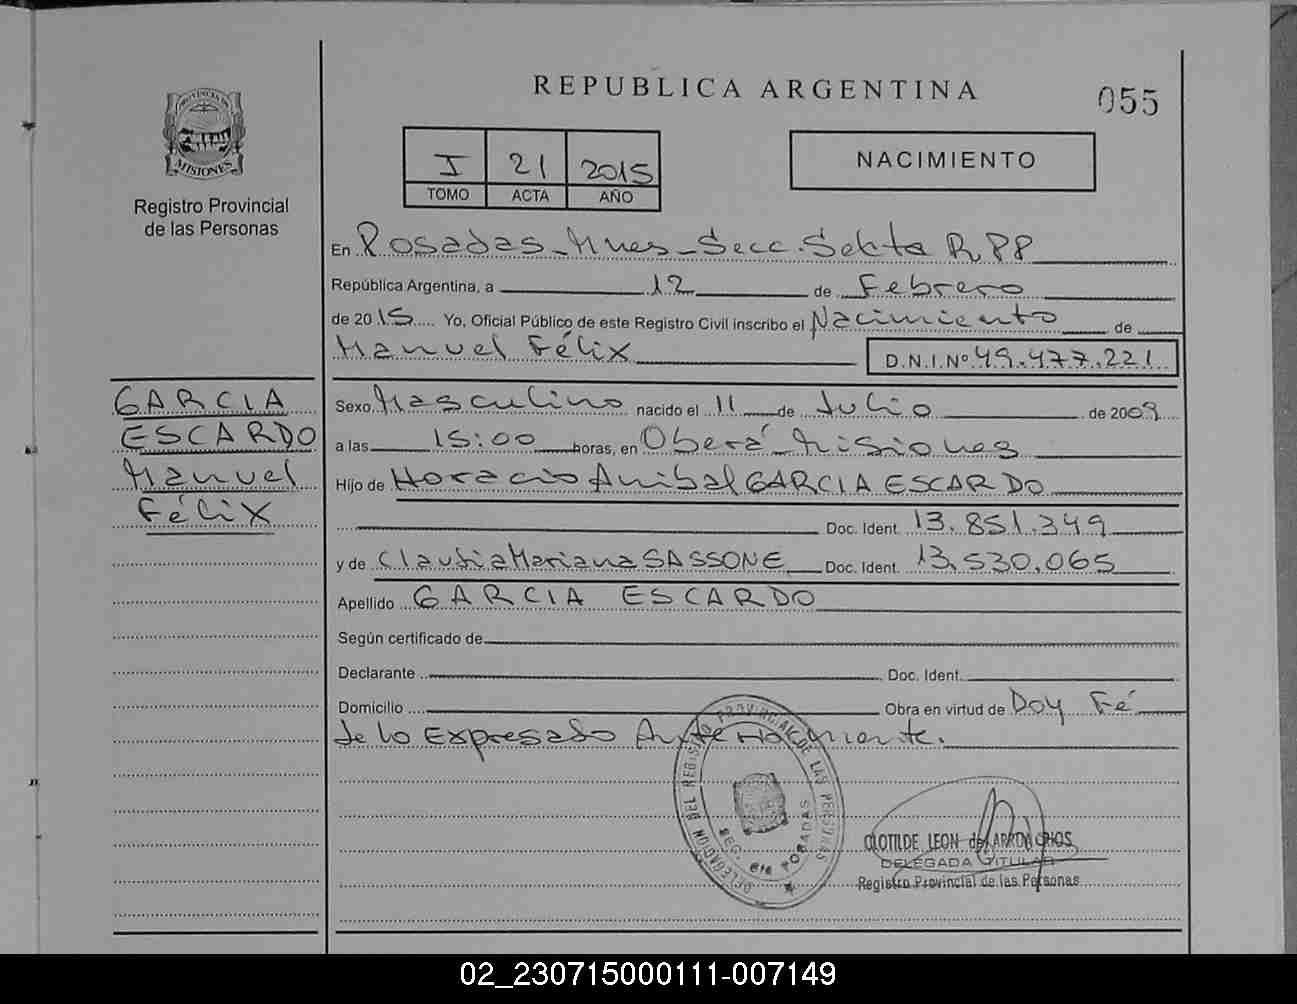 REPUBLICA ARGENTINA
055
PROVINCIA DE
MISIONES
Registro Provincial
de las Personas
I 21 2015
TOMO ACTA AÑO
NACIMIENTO
En Posadas - Mnes - Secc. Sexta R. PP
República Argentina, a 12 de Febrero
de 2015 Yo, Oficial Público de este Registro Civil inscribo el Nacimiento de
Manuel Félix D.N.I.Nº 49.477.221
GARCIA
ESCARDO
Manuel
Félix
Sexo Masculino nacido el 11 de Julio de 2009
a las 15:00 horas, en Oberá - Misiones
Hijo de Horacio Anibal GARCIA ESCARDO
Doc. Ident. 13.851.349
y de Claudia Mariana SASSONE Doc. Ident. 13.530.065
Apellido GARCIA ESCARDO
Según certificado de
Declarante Doc. Ident.
Domicilio Obra en virtud de Doy Fé
de lo Expresado Anteriormente.
DELEGACION DEL REGISTRO PROVINCIAL DE LAS PERSONAS
SEC. 6ta POSADAS
CLOTILDE LEON de
DELEGADA TITULAR
Registro Provincial de las Personas
02_230715000111-007149